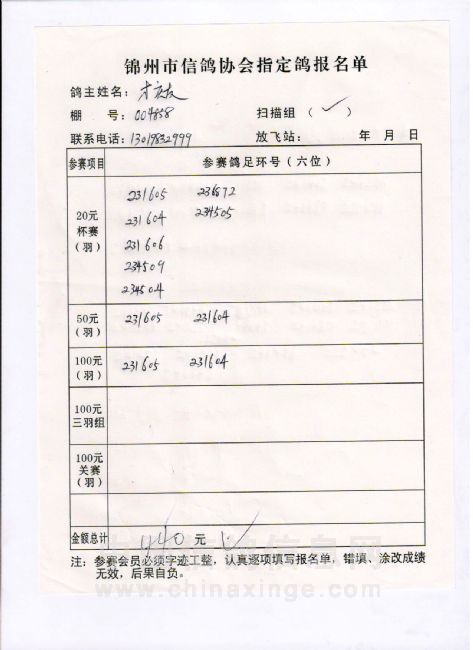 锦州市信鸽协会指定鸽报名单
鸽主姓名:
棚 号: 004858 扫描组 ( ✓ )
联系电话: 13019832999 放飞站: 年 月 日
参赛项目 参赛鸽足环号(六位)
20元 杯赛 (羽)
231605 236872
231604 234505
231606
234509
234504
50元 (羽) 231605 231604
100元 (羽) 231605 231604
100元 三羽组
100元 关赛 (羽)
金额总计 440 元
注: 参赛会员必须字迹工整, 认真逐项填写报名单, 错填、涂改成绩
无效, 后果自负。
www.chinaxinge.com